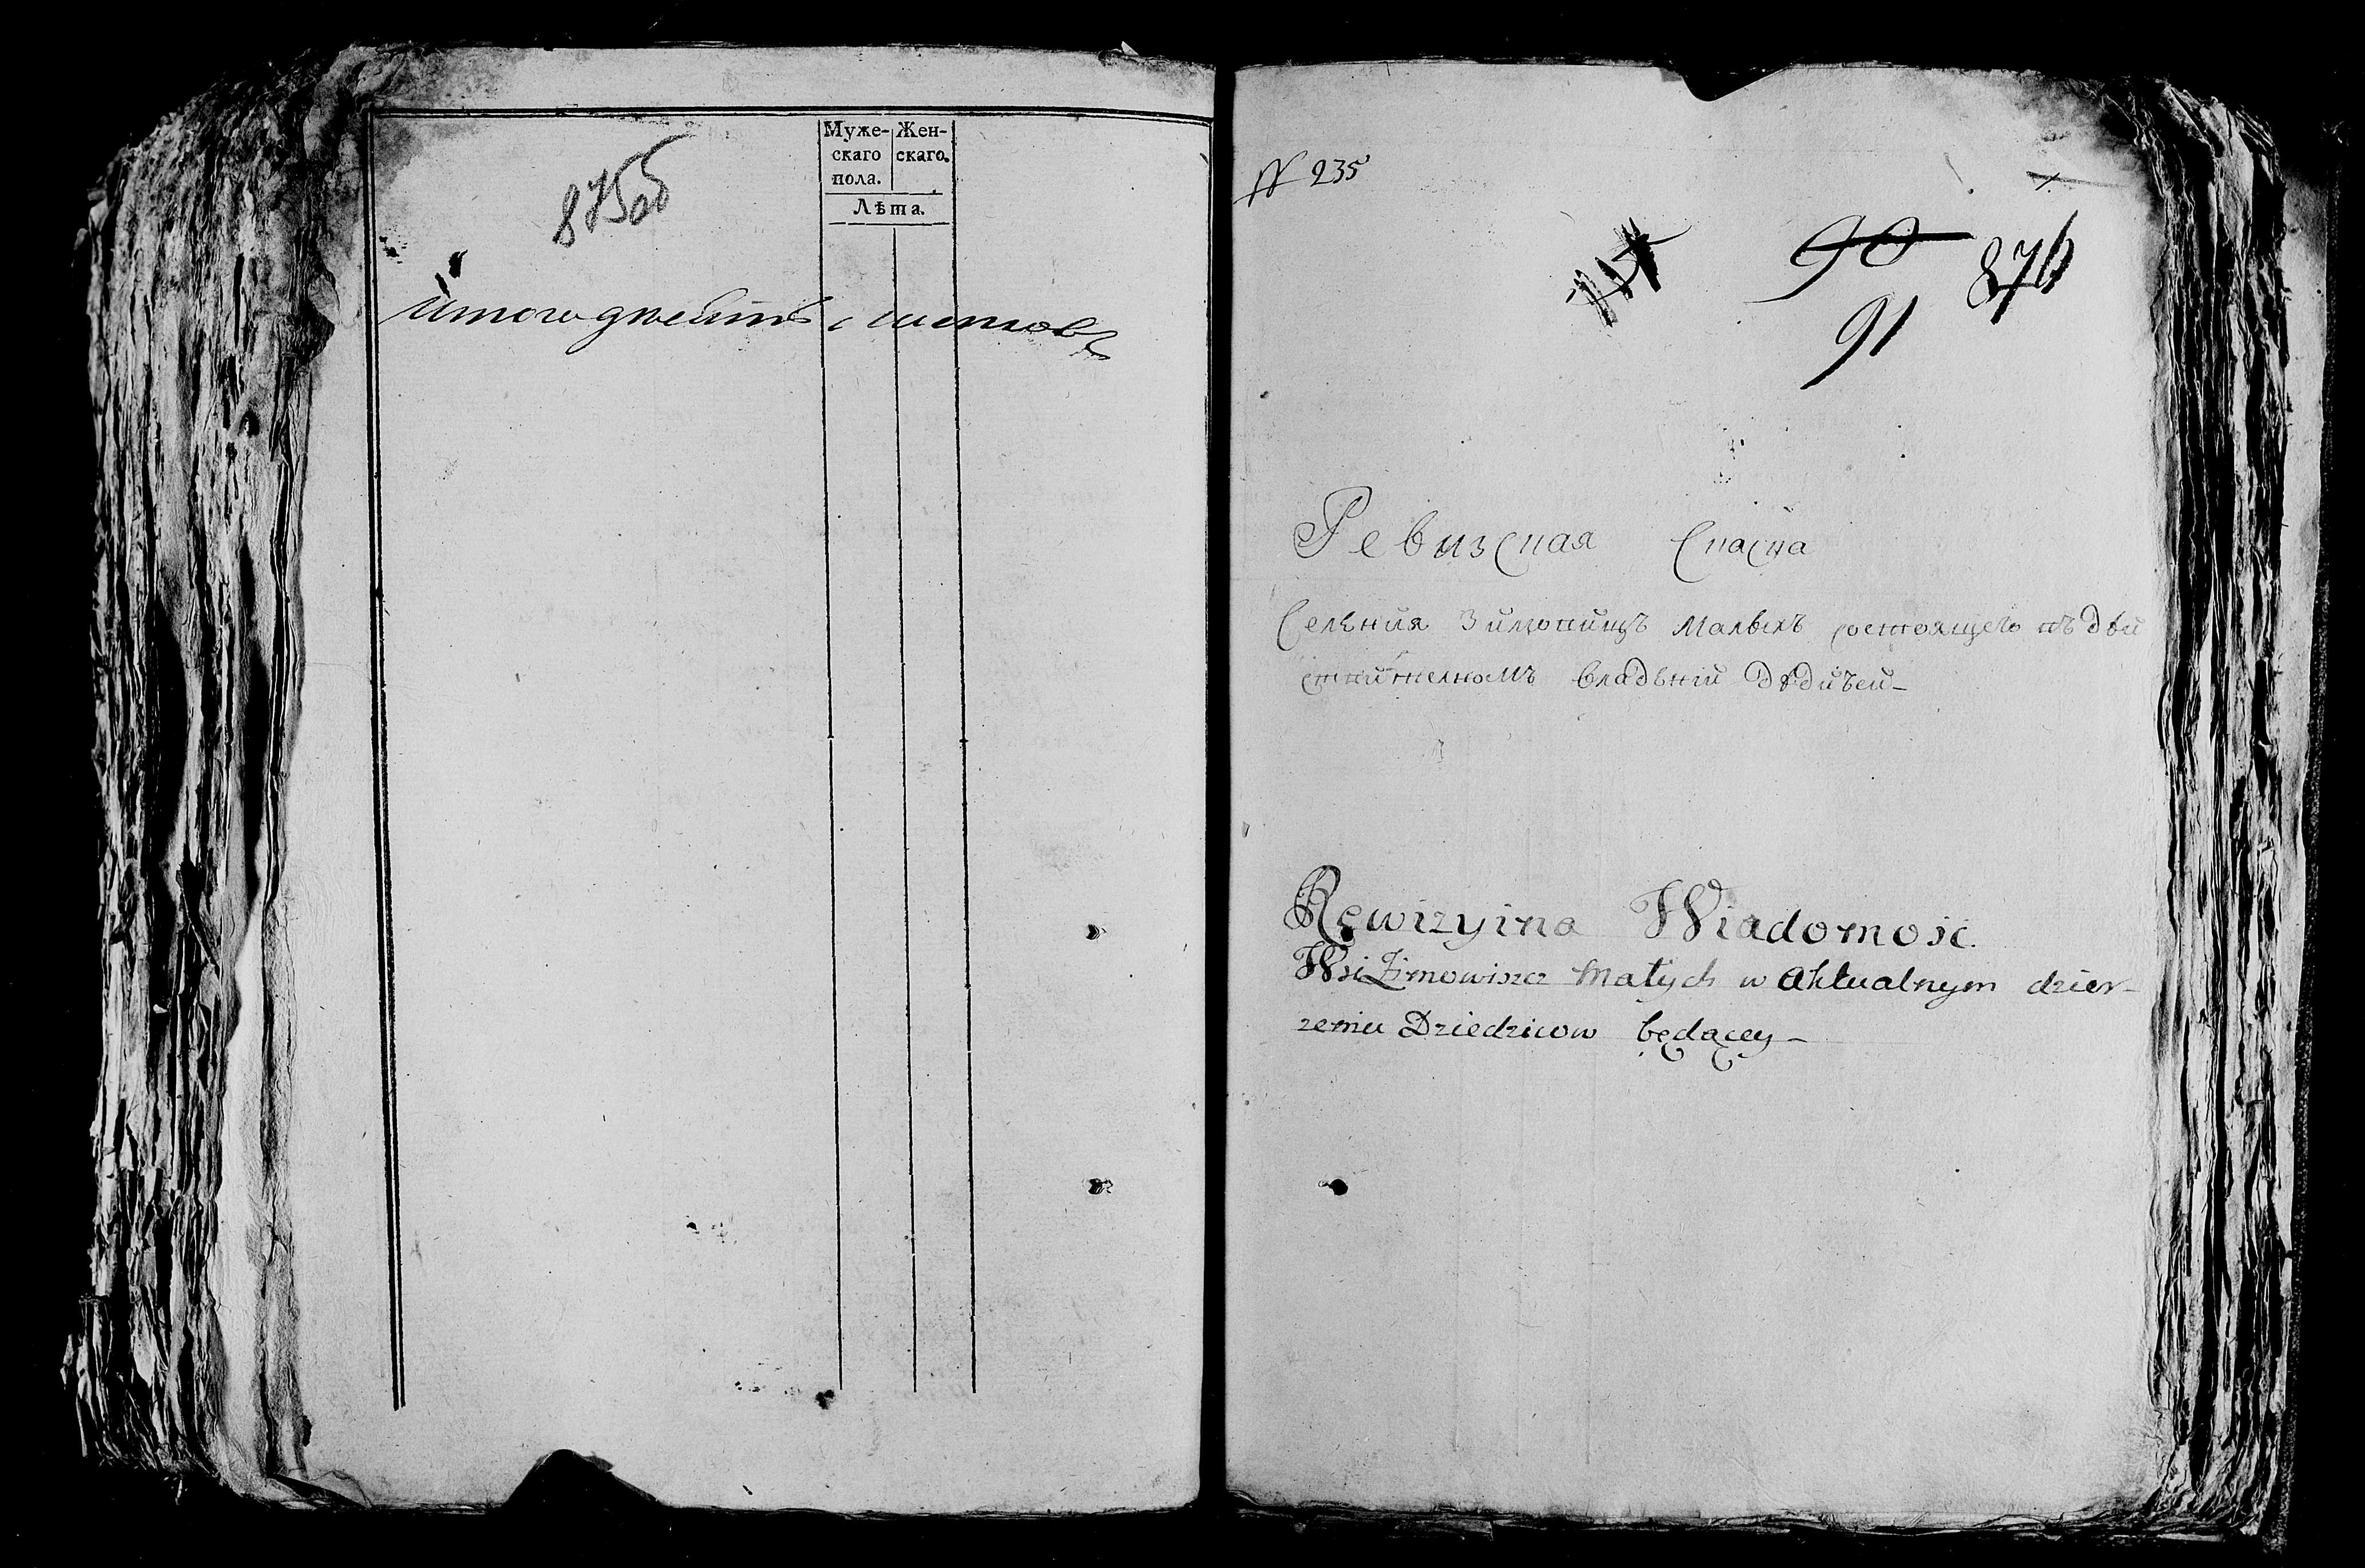 875об
Муже- Жен-
скаго скаго.
пола.
Лѣта.
Итого листовъ
N 235
90 876
91
Ревизская Сказка
Селѣния Зимовищъ Малыхъ состоящего въ дѣй
ствителномъ владѣнiи дѣдичей-
Rewizyina Wiadomość.
Wsi Zimowiszcz Małych w aktualnym dzier-
zeniu Dziedzicow będącey-